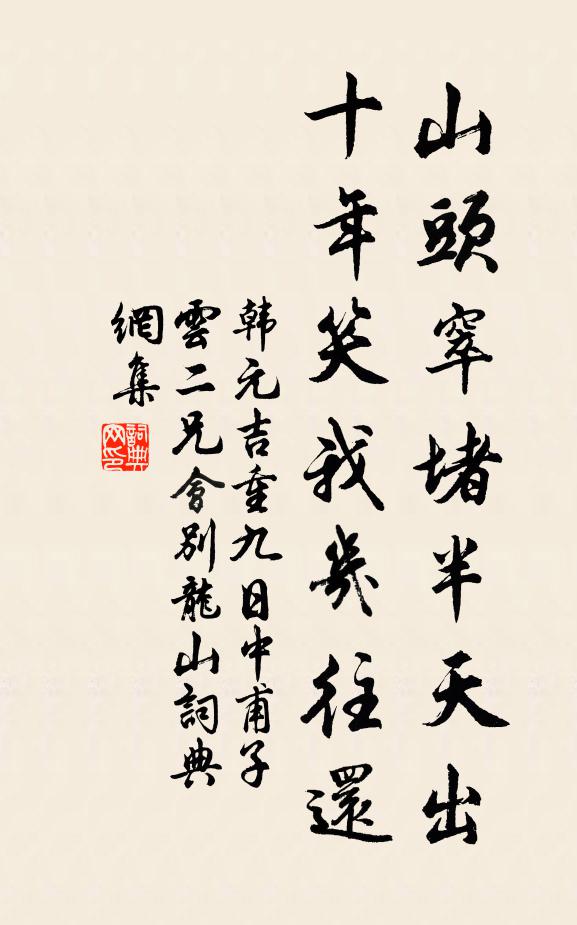 山頭窣堵半天出
十年笑我幾往還
韩元吉重九日中甫子
雲二兄會别龍山詞典
網集
詞典
网印